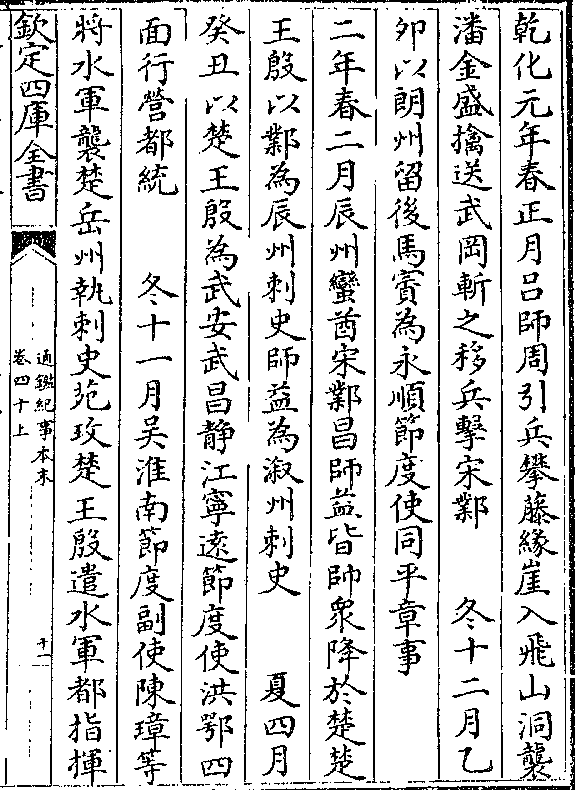 乾化元年春正月吕師周引兵攀藤緣崖入飛山洞襲
潘金盛擒送武岡斬之移兵擊宋鄴　冬十二月乙
夘以朗州留後馬賨為永順節度使同平章事
二年春二月辰州蠻酋宋鄴昌師益皆帥衆降於楚楚
王殷以鄴為辰州刺史師益為溆州刺史　夏四月
癸丑以楚王殷為武安武昌静江寧遠節度使洪鄂四
面行營都統　冬十一月吴淮南節度副使陳璋等
將水軍襲楚岳州執刺史苑玫楚王殷遣水軍都指揮
欽定四庫全書
通鑑紀事本末
卷四十上
十一